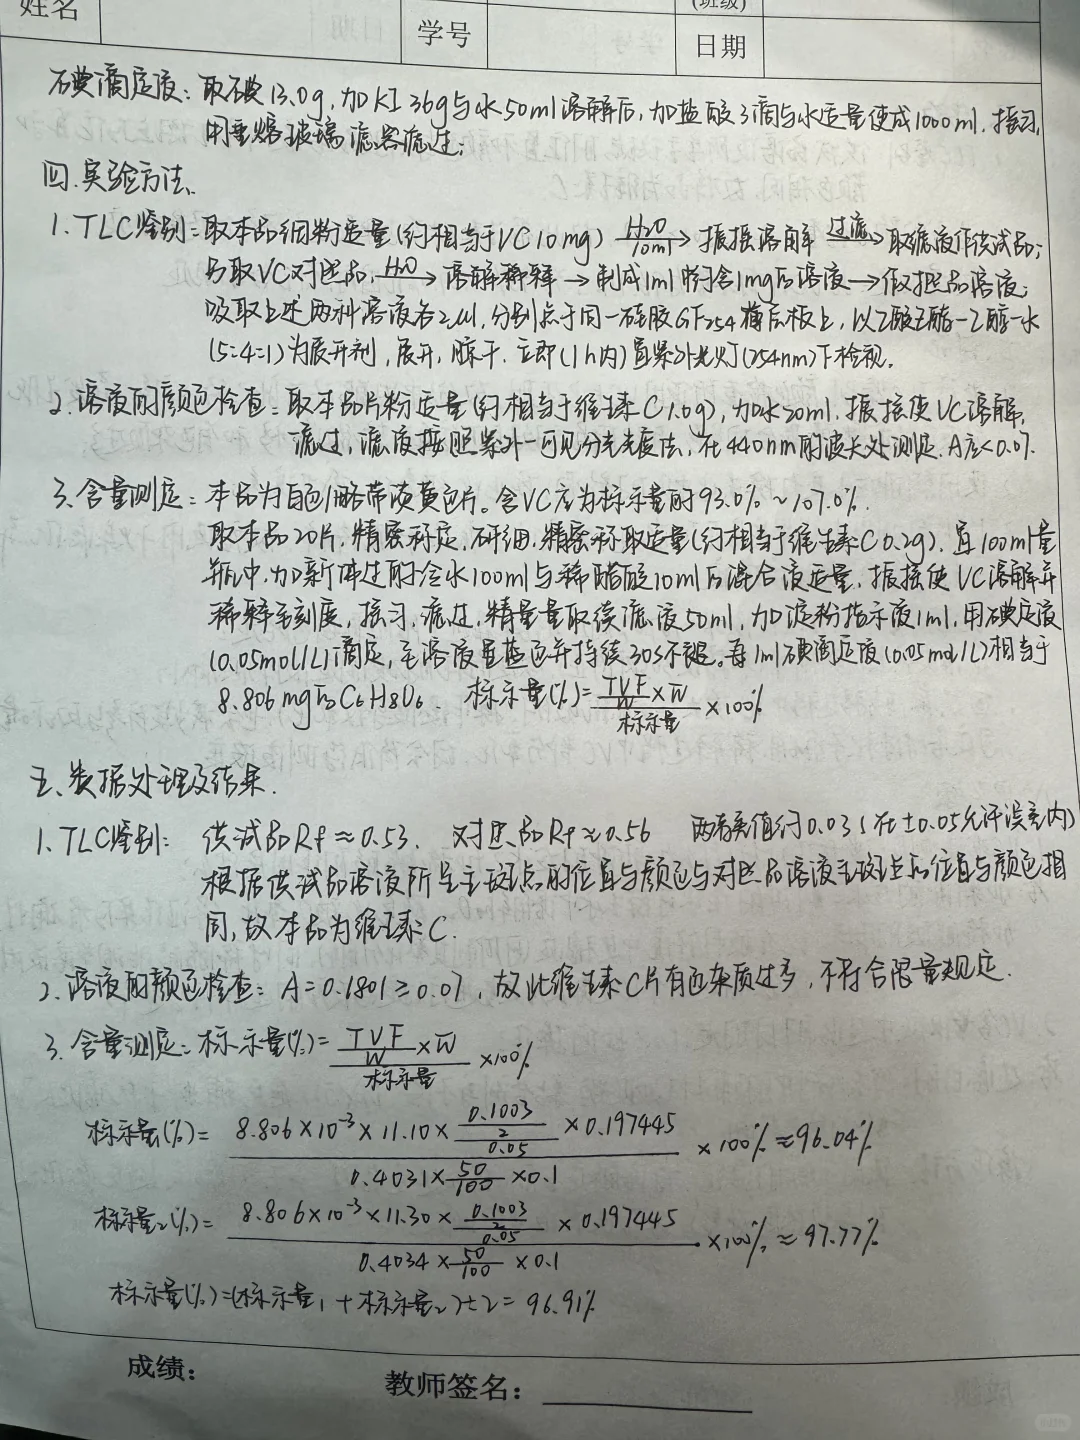 姓名
学号
(班级)
日期
碘滴定液：取碘13.0g，加KI 36g与水50ml溶解后，加盐酸3滴与水适量使成1000ml，摇匀，
用垂熔玻璃滤器滤过；
四.实验方法、
1.TLC鉴别：取本品细粉适量(约相当于VC 10mg) H₂O 10ml→ 振摇溶解 过滤→ 取滤液作供试品；
另取VC对照品 H₂O→ 溶解稀释→制成1ml中约含1mg的溶液→作对照品溶液；
吸取上述两种溶液各2μl，分别点于同一硅胶GF254薄层板上，以乙酸乙酯-乙醇-水
(5:4:1)为展开剂，展开，晾干，立即(1h内)置紫外光灯(254nm)下检视。
2.溶液的颜色检查：取本品片粉适量(约相当于维生素C 1.0g)，加水20ml，振摇使VC溶解，
滤过，滤液按照紫外-可见分光光度法，在440nm的波长处测定，A应<0.07.
3.含量测定：本品为白色/略带淡黄色片。含VC应为标示量的93.0%~107.0%.
取本品20片，精密称定，研细，精密称取适量(约相当于维生素C 0.2g)，置100ml量
瓶中，加新沸过的冷水100ml与稀醋酸10ml的混合液适量，振摇使VC溶解并
稀释至刻度，摇匀，滤过，精量量取续滤液50ml，加淀粉指示液1ml，用碘定液
(0.05mol/L)滴定，至溶液显蓝色并持续30s不褪。每1ml碘滴定液(0.05mol/L)相当于
8.806mg的C₆H₈O₆. 标示量(%)=\frac{\frac{TVF}{W}×\overline{W}}{标示量}×100%
五、数据处理及结果.
1.TLC鉴别： 供试品Rf≈0.53. 对照品Rf≈0.56 两者差值约0.03(在±0.05允许误差内)
根据供试品溶液所呈主斑点的位置与颜色与对照品溶液主斑点的位置与颜色相
同，故本品为维生素C.
2.溶液的颜色检查：A=0.1801≥0.07，故此维生素C片有色杂质过多，不符合限量规定.
3.含量测定：标示量(%)=\frac{\frac{TVF}{W}×\overline{W}}{标示量}×100%
标示量₁(%)=\frac{8.806×10⁻³×11.10×\frac{\frac{0.1003}{2}}{0.05}×0.197445}{0.4031×\frac{50}{100}×0.1}×100%≈96.04%
标示量₂(%)=\frac{8.806×10⁻³×11.30×\frac{\frac{0.1003}{2}}{0.05}×0.197445}{0.4034×\frac{50}{100}×0.1}×100%≈97.77%
标示量(%)=(标示量₁+标示量₂)÷2=96.91%
成绩：
教师签名：